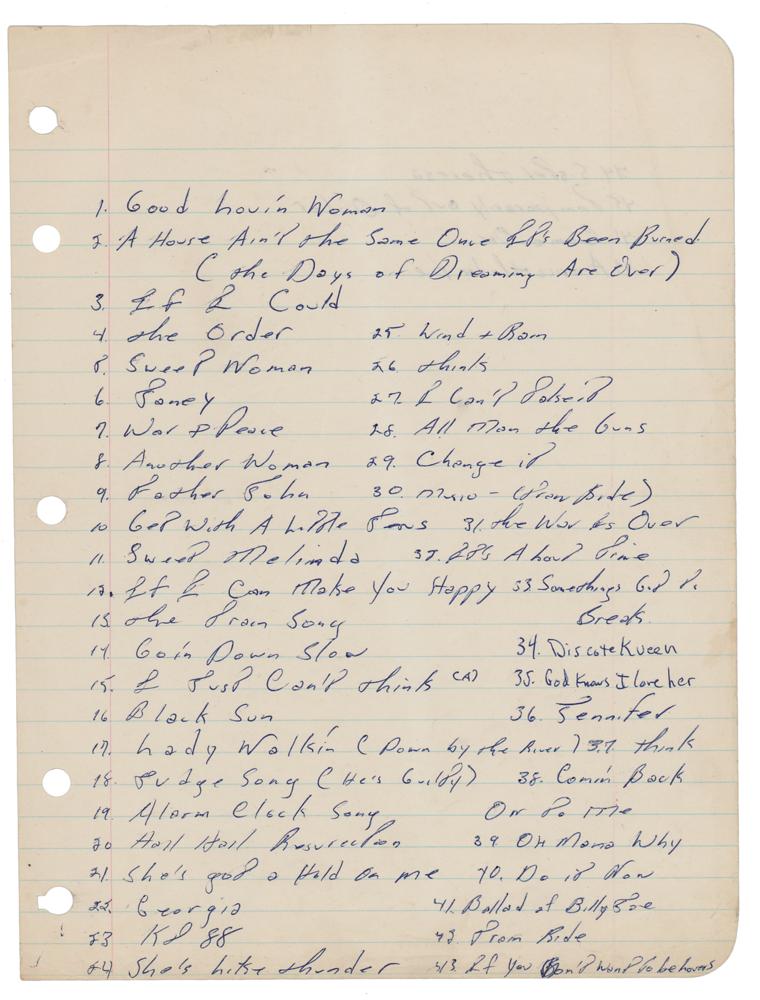 1. Good Lovin Woman
2. A House Ain't the Same Once It's Been Burned
(the Days of Dreaming Are Over)
3. If I Could
4. the Order 25. Wind + Rain
5. Sweet Woman 26. think
6. Toney 27. I Can't
7. War & Peace 28. All Man the Guns
8. Another Woman 29. Change it
9. Father John 30. (Tram Ride)
10 Get With A Little Jesus 31. the War Is Over
11. Sweet Melinda 32. It's About Time
12. If I Can Make You Happy 33. Somethings Got To
13. the Train Song Break
14 Goin Down Slow 34. Discote Kueen
15. I Just Can't think (A) 35. God Knows I love her
16 Black Sun 36. Jennifer
17. Lady Walkin (Down by the River) 37. think
18. Judge Song (He's Guilty) 38. Comin Back
19. Alarm Clock Song On To Me
20 Hail Hail Resurrection 39 OH Mama Why
21. She's got a Hold On me 40. Do it Now
22. Georgia 41. Ballad of Billy Joe
23 KJ 88 42. Tram Ride
24 She's like thunder 43. If You Don't Want To be